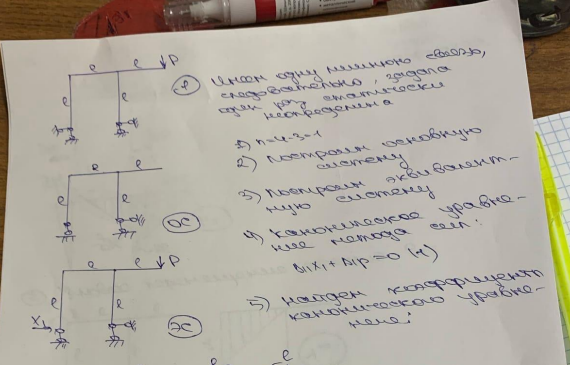 e e P
e e
Имеем одну лишнюю связь,
следовательно, задача
один раз статически
неопределима
1) n=4-3=1
2) Построим основную
систему
3) Построим эквивалент-
ную систему
4) Каноническое уравне-
ние метода сил:
5) Найдем коэффициент
канонического уравне-
e e
e e
ОС
e e P
e e
X₁
ЭС
e